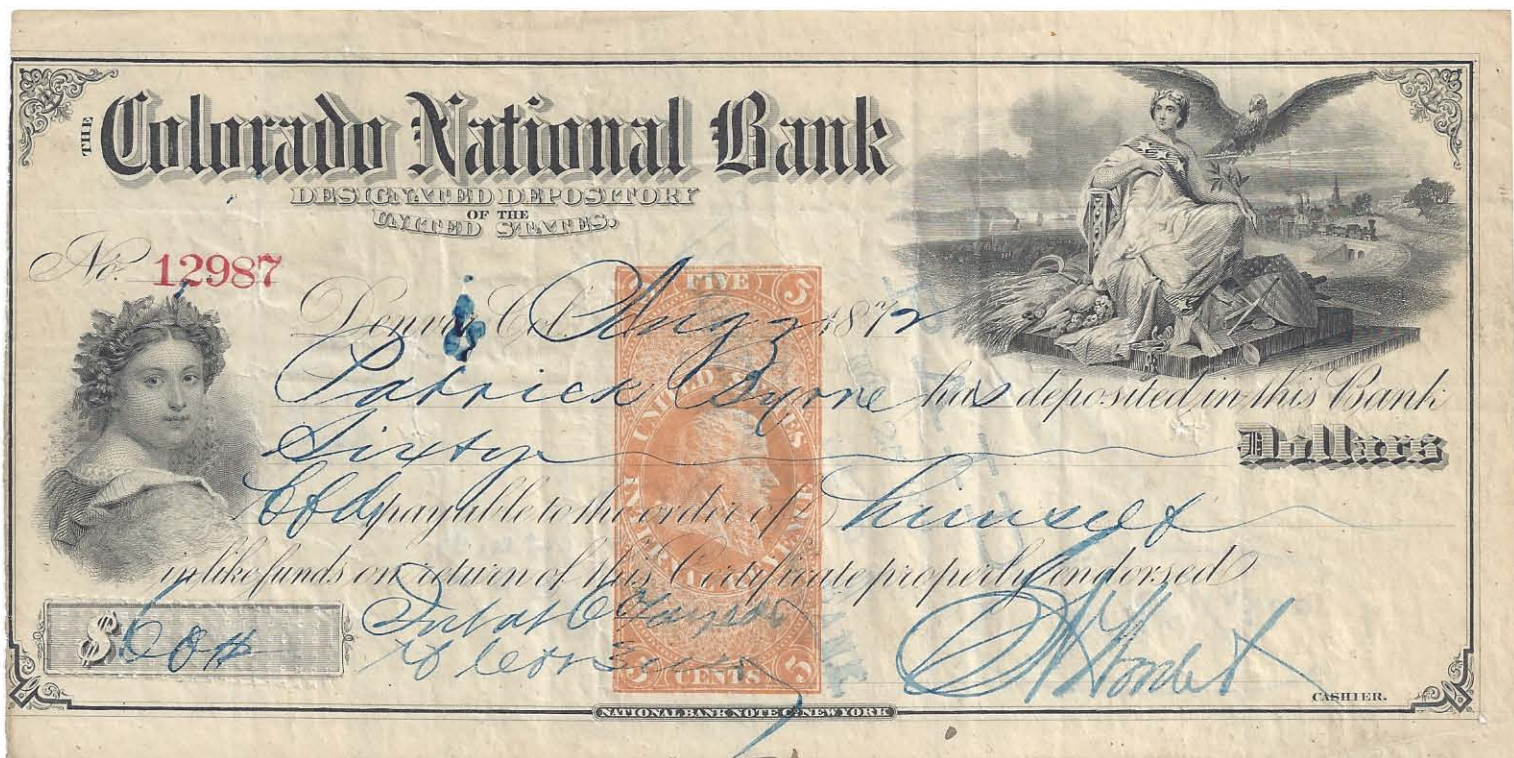 THE Colorado National Bank
DESIGNATED DEPOSITORY
OF THE
UNITED STATES.
No. 12987
Denver Aug 1872
Patrick Byrne has deposited in this Bank
Sixty Dollars
payable to the order of himself
in like funds on return of this Certificate properly endorsed
$60
CASHIER.
FIVE 5
UNITED STATES
INTER. REVENUE
5 CENTS 5
NATIONAL BANK NOTE Co. NEW YORK